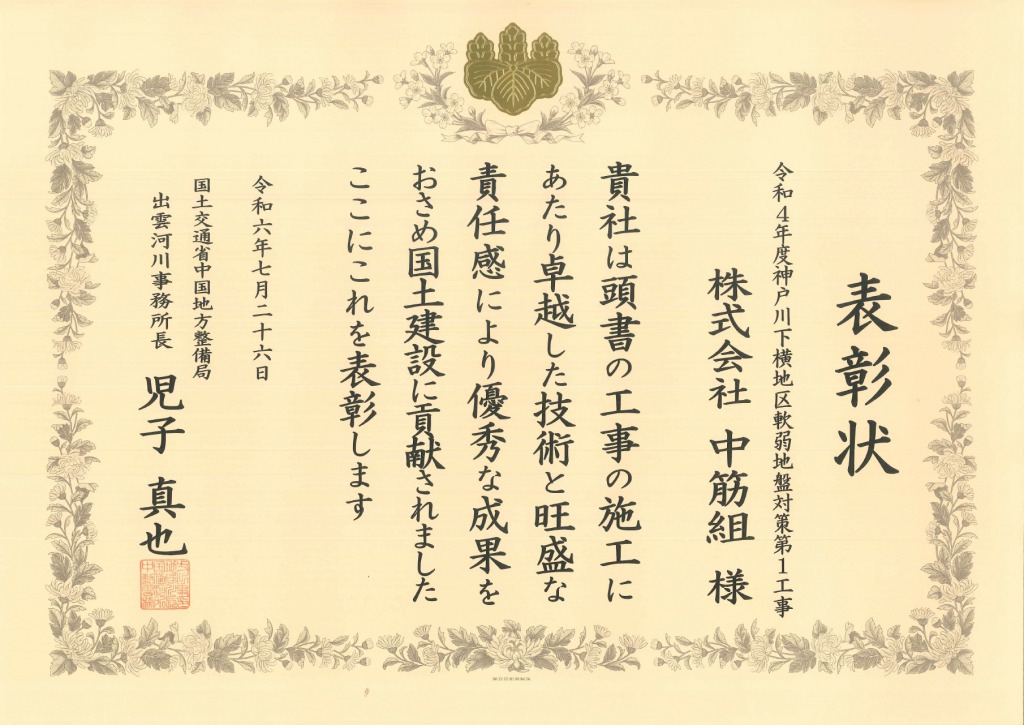 表彰状
令和４年度神戸川下横地区軟弱地盤対策第１工事
株式会社 中筋組 様
貴社は頭書の工事の施工に
あたり卓越した技術と旺盛な
責任感により優秀な成果を
おさめ国土建設に貢献されました
ここにこれを表彰します
令和六年七月二十六日
国土交通省中国地方整備局
出雲河川事務所長 児子 真也